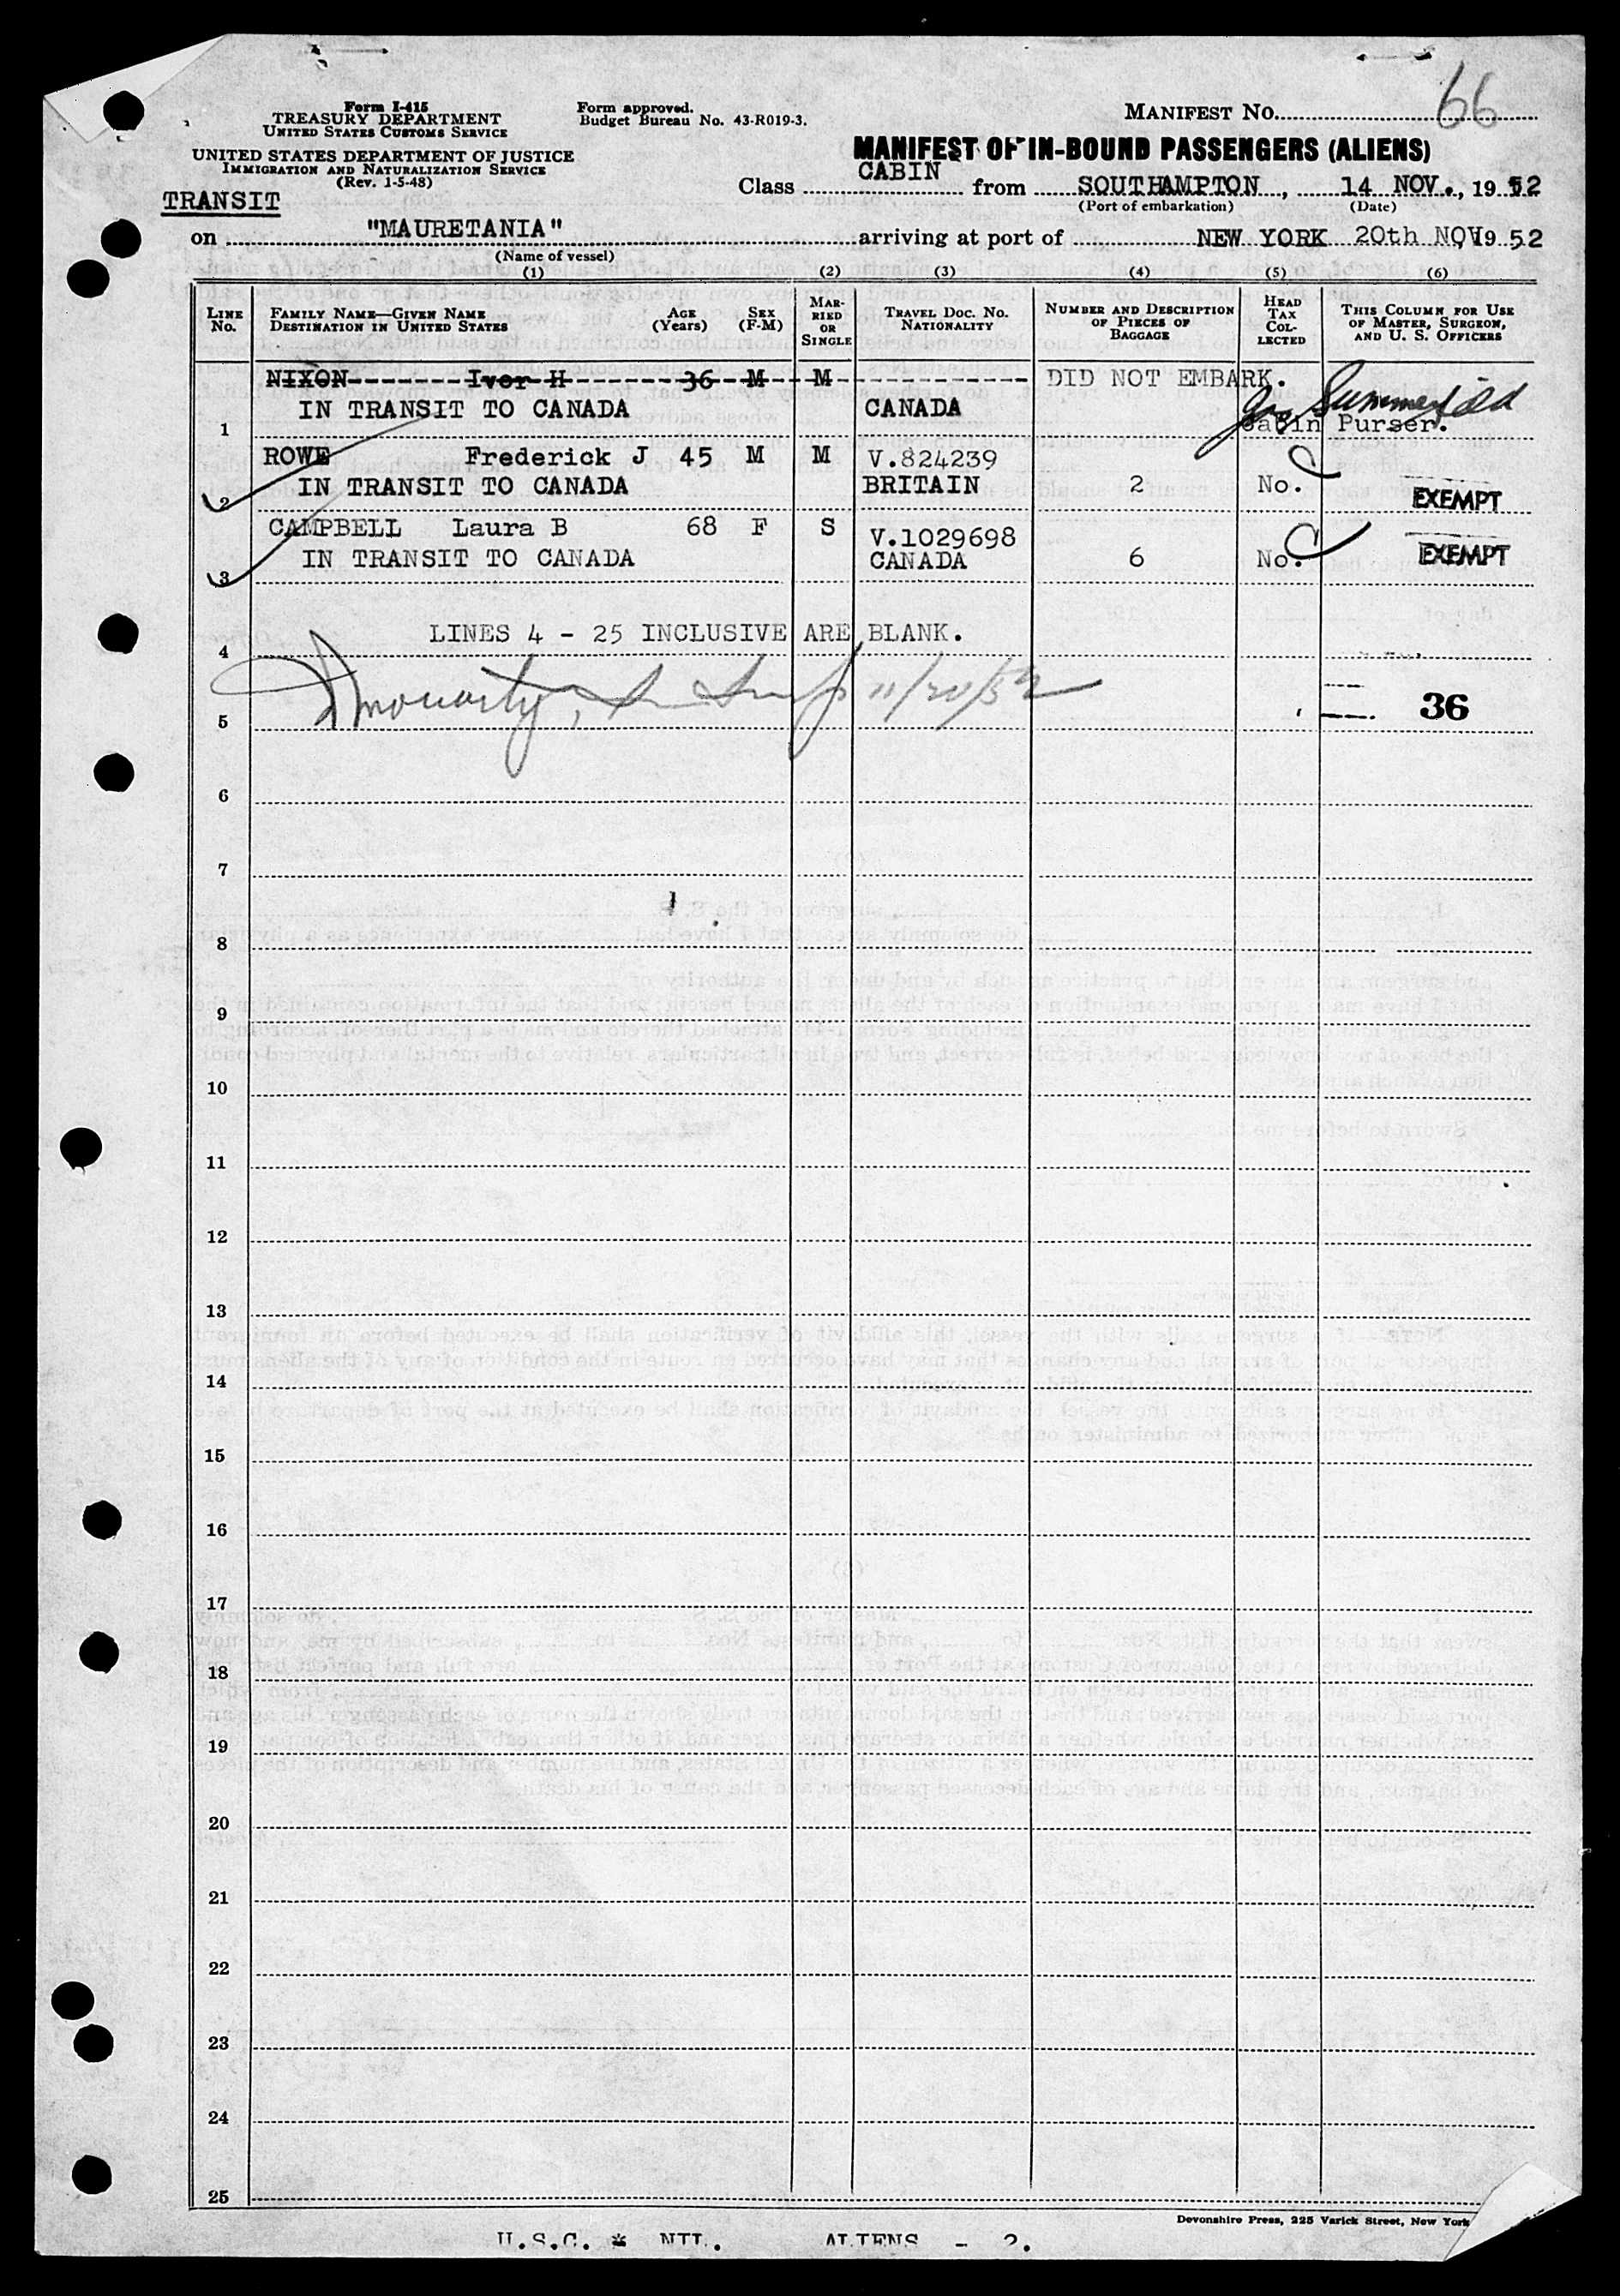 66
Form I-415
TREASURY DEPARTMENT
UNITED STATES CUSTOMS SERVICE
Form approved.
Budget Bureau No. 43-R019-3.
MANIFEST No.
UNITED STATES DEPARTMENT OF JUSTICE
IMMIGRATION AND NATURALIZATION SERVICE
(Rev. 1-5-48)
MANIFEST OF IN-BOUND PASSENGERS (ALIENS)
TRANSIT
Class CABIN from SOUTHAMPTON, 14 NOV., 19 52
(Port of embarkation) (Date)
on "MAURETANIA" arriving at port of NEW YORK 20th NOV 19 52
(Name of vessel)
(1) (2) (3) (4) (5) (6)
LINE No.
FAMILY NAME—GIVEN NAME
DESTINATION IN UNITED STATES
AGE (Years)
SEX (F-M)
MARRIED OR SINGLE
TRAVEL DOC. No.
NATIONALITY
NUMBER AND DESCRIPTION OF PIECES OF BAGGAGE
HEAD TAX COLLECTED
THIS COLUMN FOR USE OF MASTER, SURGEON, AND U. S. OFFICERS
NIXON------- Ivor H ------- 36 M -- M ------------ DID NOT EMBARK.
1 IN TRANSIT TO CANADA CANADA Summerfield
Cabin Purser.
ROWE Frederick J 45 M M V.824239
2 IN TRANSIT TO CANADA BRITAIN 2 No. EXEMPT
CAMPBELL Laura B 68 F S V.1029698
3 IN TRANSIT TO CANADA CANADA 6 No. EXEMPT
LINES 4 - 25 INCLUSIVE ARE BLANK.
4
5 11/20/52 36
6
7
8
9
10
11
12
13
14
15
16
17
18
19
20
21
22
23
24
25
Devonshire Press, 225 Varick Street, New York
U.S.C. * NIL. ALIENS - 2.